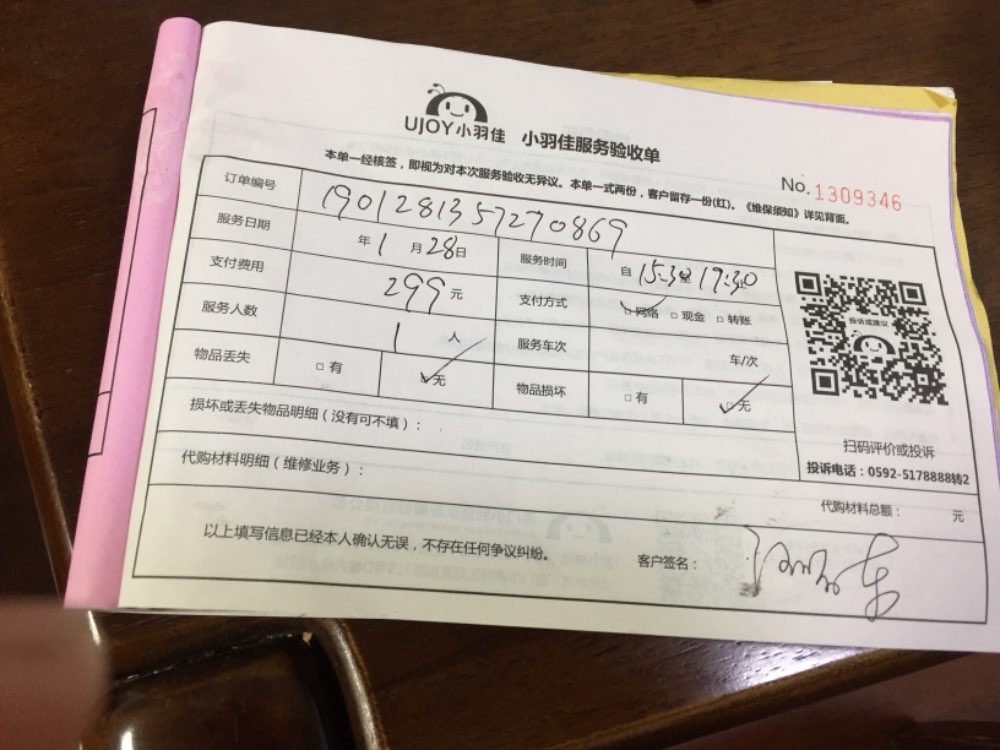 UJOY小羽佳 小羽佳服务验收单
本单一经核签，即视为对本次服务验收无异议。本单一式两份，客户留存一份(红)。《维保须知》详见背面。
No.1309346
订单编号 1901281357270869
服务日期 年1月28日 服务时间 自15:30至17:30止
支付费用 299元 支付方式 网络 □现金 □转账
服务人数 1人 服务车次 车/次
物品丢失 □有 □无 物品损坏 □有 □无
投诉或建议
扫码评价或投诉
投诉电话：0592-5178888转2
损坏或丢失物品明细（没有可不填）：
代购材料明细（维修业务）：
代购材料总额： 元
以上填写信息已经本人确认无误，不存在任何争议纠纷。
客户签名：